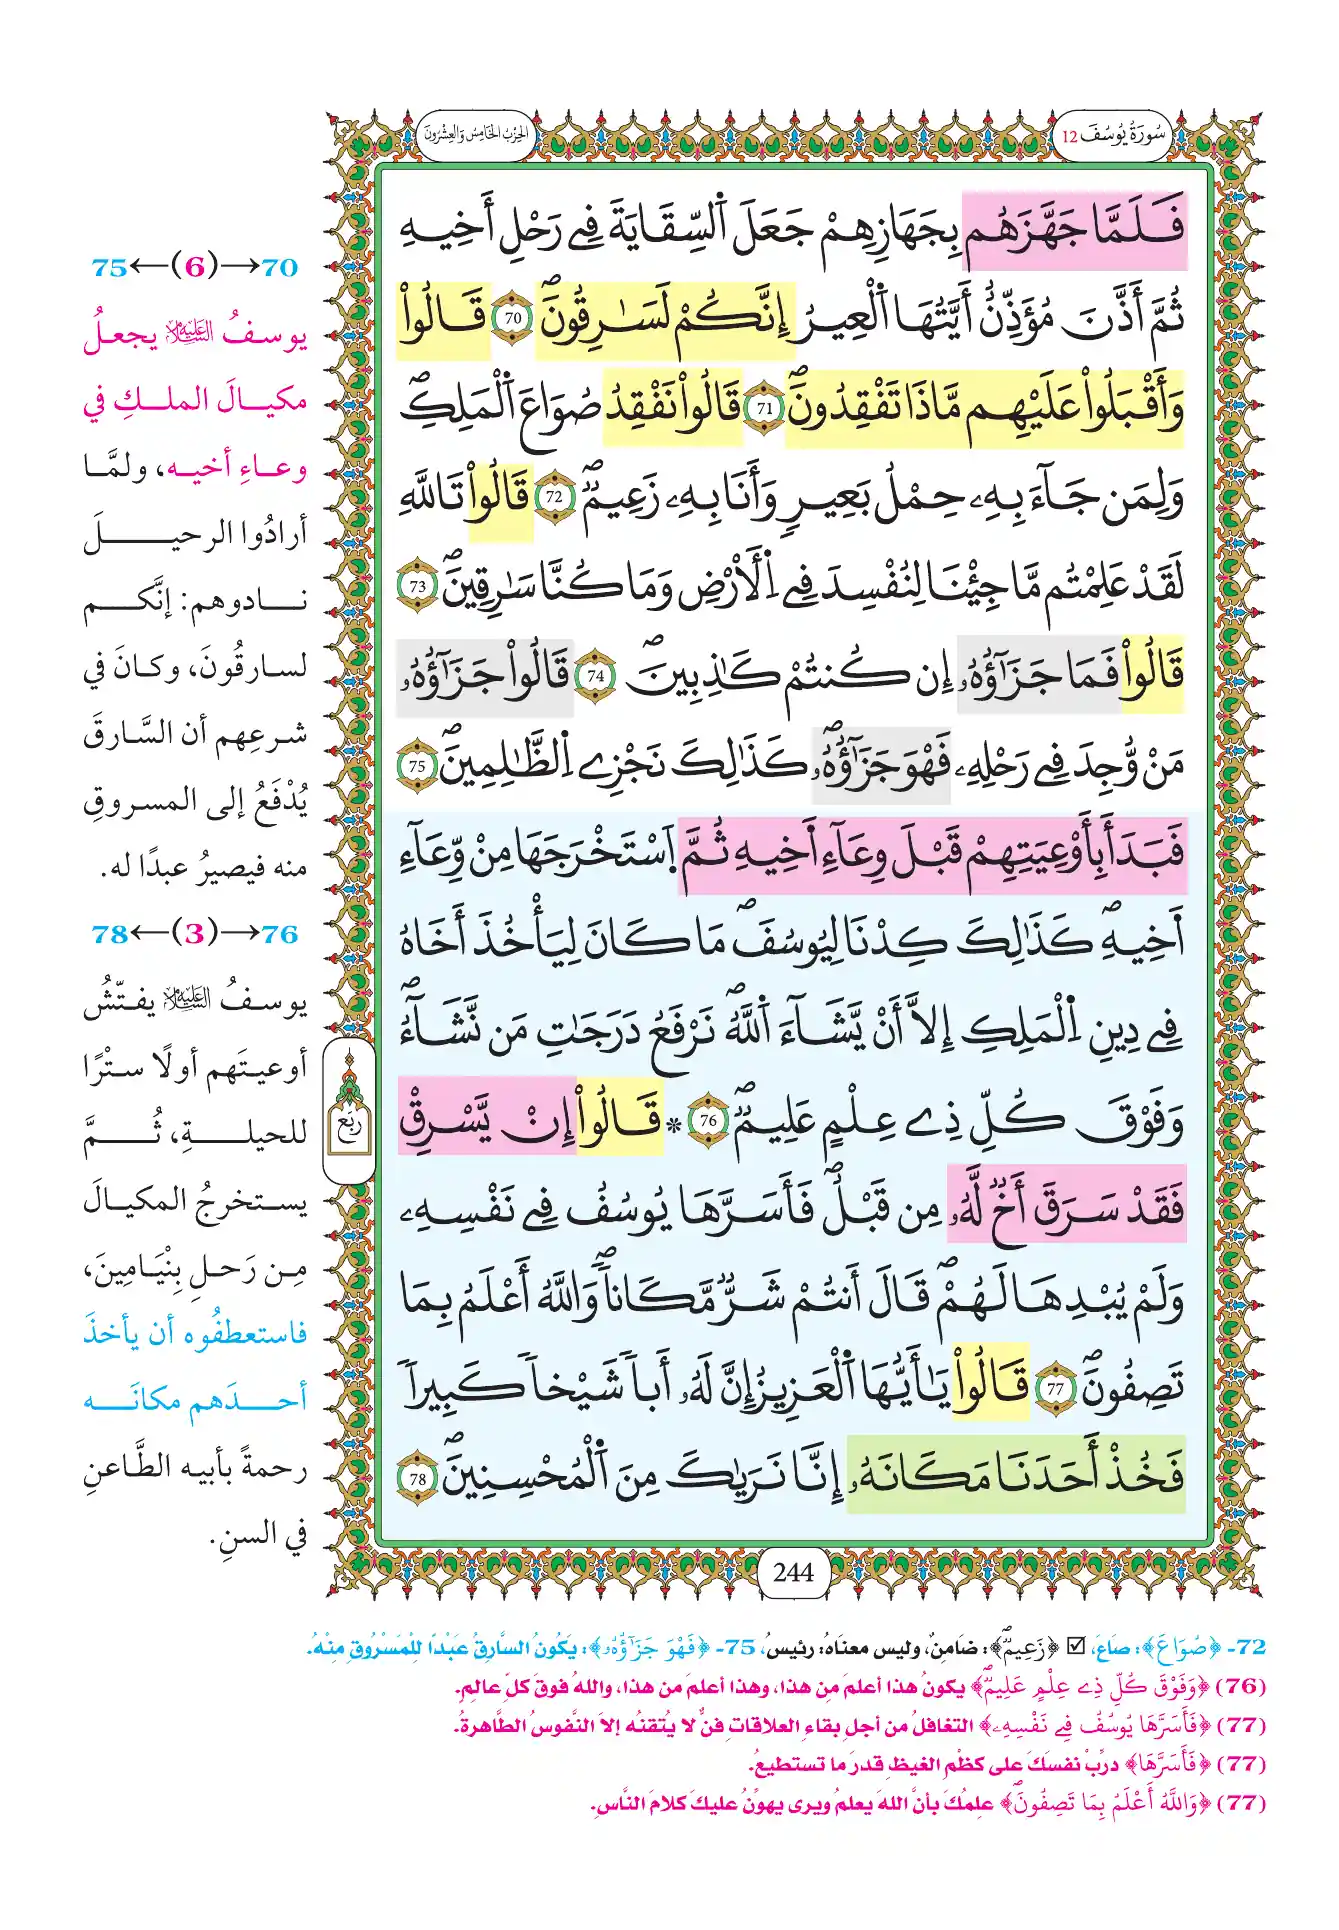 سُورَةُ يُوسُفَ 12
الحِزْبُ الخَامِسُ وَالعِشْرُونَ
فَلَمَّا جَهَّزَهُم بِجَهَازِهِمْ جَعَلَ اَ۬لسِّقَايَةَ فِے رَحْلِ أَخِيهِ
ثُمَّ أَذَّنَ مُؤَذِّنٌ أَيَّتُهَا اَ۬لْعِيرُ إِنَّكُمْ لَسَٰرِقُونَۖ 70 قَالُواْ
وَأَقْبَلُواْ عَلَيْهِم مَّاذَا تَفْقِدُونَۖ 71 قَالُواْ نَفْقِدُ صُوَاعَ اَ۬لْمَلِكِۖ
وَلِمَن جَآءَ بِهِۦ حِمْلُ بَعِيرٖ وَأَنَا بِهِۦ زَعِيمٞۖ 72 قَالُواْ تَاللَّهِ
لَقَدْ عَلِمْتُم مَّا جِئْنَا لِنُفْسِدَ فِے اِ۬لْأَرْضِ وَمَا كُنَّا سَٰرِقِينَۖ 73
قَالُواْ فَمَا جَزَٰٓؤُهُۥ إِن كُنتُمْ كَٰذِبِينَۖ 74 قَالُواْ جَزَٰٓؤُهُۥ
مَنْ وُّجِدَ فِے رَحْلِهِۦ فَهْوَ جَزَٰٓؤُهُۥۖ كَذَٰلِكَ نَجْزِے اِ۬لظَّٰلِمِينَۖ 75
فَبَدَأَ بِأَوْعِيَتِهِمْ قَبْلَ وِعَآءِ اَ۬خِيهِ ثُمَّ اَ۪سْتَخْرَجَهَا مِنْ وِّعَآءِ
اَ۬خِيهِۖ كَذَٰلِكَ كِدْنَا لِيُوسُفَۖ مَا كَانَ لِيَأْخُذَ أَخَاهُ
فِے دِينِ اِ۬لْمَلِكِ إِلَّا أَنْ يَّشَآءَ اَ۬للَّهُۖ نَرْفَعُ دَرَجَٰتِ مَن نَّشَآءُۖ
وَفَوْقَ كُلِّ ذِے عِلْمٍ عَلِيمٞۖ 76 * قَالُواْ إِنْ يَّسْرِقْ
فَقَدْ سَرَقَ أَخٞ لَّهُۥ مِن قَبْلُۖ فَأَسَرَّهَا يُوسُفُ فِے نَفْسِهِۦ
وَلَمْ يُبْدِهَا لَهُمْۖ قَالَ أَنتُمْ شَرّٞ مَّكَاناٗۖ وَاللَّهُ أَعْلَمُ بِمَا
تَصِفُونَۖ 77 قَالُواْ يَٰأَيُّهَا اَ۬لْعَزِيزُ إِنَّ لَهُۥ أَباٗ شَيْخاٗ كَبِيراٗ
فَخُذْ أَحَدَنَا مَكَانَهُۥ إِنَّا نَرَىٰكَ مِنَ اَ۬لْمُحْسِنِينَۖ 78
244
ربع
70→(6)←75
يوسفُ عليه السلام يجعلُ
مكيالَ الملكِ في
وعاءِ أخيه، ولمَّا
أرادُوا الرحيلَ
نادوهم: إنَّكم
لسارقُونَ، وكانَ في
شرعِهم أن السَّارقَ
يُدْفَعُ إلى المسروقِ
منه فيصيرُ عبدًا له.
76→(3)←78
يوسفُ عليه السلام يفتّشُ
أوعيتَهم أولًا سترًا
للحيلةِ، ثُمَّ
يستخرجُ المكيالَ
مِن رَحلِ بِنْيَامِينَ،
فاستعطفُوه أن يأخذَ
أحدَهم مكانَه
رحمةً بأبيه الطَّاعنِ
في السنِ.
72- ﴿صُوَاعَ﴾: صاعَ، ☑ ﴿زَعِيمٞۖ﴾: ضَامِنٌ، وليس معناهُ: رئيسُ، 75- ﴿فَهْوَ جَزَٰٓؤُهُۥ﴾: يكُونُ السَّارِقُ عَبْدًا لِلْمَسْرُوقِ مِنْهُ.
(76) ﴿وَفَوْقَ كُلِّ ذِے عِلْمٍ عَلِيمٞۖ﴾ يكونُ هذا أعلمَ مِن هذا، وهذا أعلمَ من هذا، واللهُ فوقَ كلِّ عالمٍ.
(77) ﴿فَأَسَرَّهَا يُوسُفُ فِے نَفْسِهِۦ﴾ التغافلُ من أجلِ بقاءِ العلاقاتِ فنٌّ لا يُتقنُه إلا النَّفوسُ الطَّاهرةُ.
(77) ﴿فَأَسَرَّهَا﴾ درِّبْ نفسَكَ على كظمِ الغيظِ قدرَ ما تستطيعُ.
(77) ﴿وَاللَّهُ أَعْلَمُ بِمَا تَصِفُونَۖ﴾ علمُكَ بأنَّ اللهَ يعلمُ ويرى يهوِّنُ عليكَ كلامَ النَّاسِ.